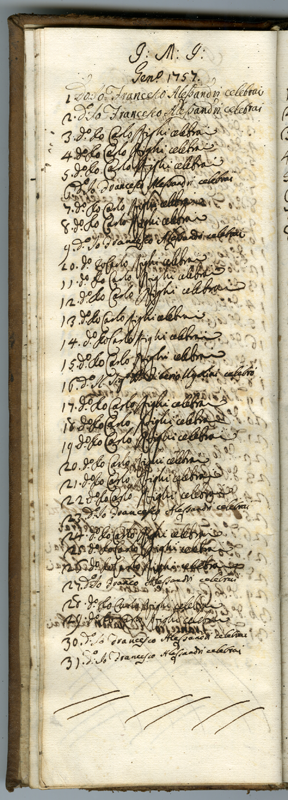 J. M. J.
Genº 1757.
1 dº Io Francesco Alessandri celebrai
2. dº Io Francesco Alessandri celebrai
3. dº Io Carlo Righi celebrai
4 dº Io Carlo Righi celebrai
5. dº Io Carlo Righi celebrai
6 dº Io Francesco Alessandri celebrai
7. dº Io Carlo Righi celebrai
8. dº Io Carlo Righi celebrai
9 dº Io Francesco Alessandri celebrai
10. dº Io Carlo Righi celebrai
11. dº Io Carlo Righi celebrai
12. dº Io Carlo Righi celebrai
13. dº Io Carlo Righi celebrai
14. dº Io Carlo Righi celebrai
15. dº Io Carlo Righi celebrai
16 dº celebrò
17. dº Io Carlo Righi celebrai
18. dº Io Carlo Righi celebrai
19. dº Io Carlo Righi celebrai
20. dº Io Carlo Righi celebrai
21. dº Io Carlo Righi celebrai
22. dº Io Carlo Righi celebrai
23. dº Io Francesco Alessandri celebrai
24. dº Io Carlo Righi celebrai
25. dº Io Carlo Righi celebrai
26. dº Io Carlo Righi celebrai
27. dº Io Franco Alessandri celebrai
28. dº Io Carlo Righi celebrai
29. dº Io Carlo Righi celebrai
30. dº Io Francesco Alessandri celebrai
31. dº Io Francesco Alessandri celebrai